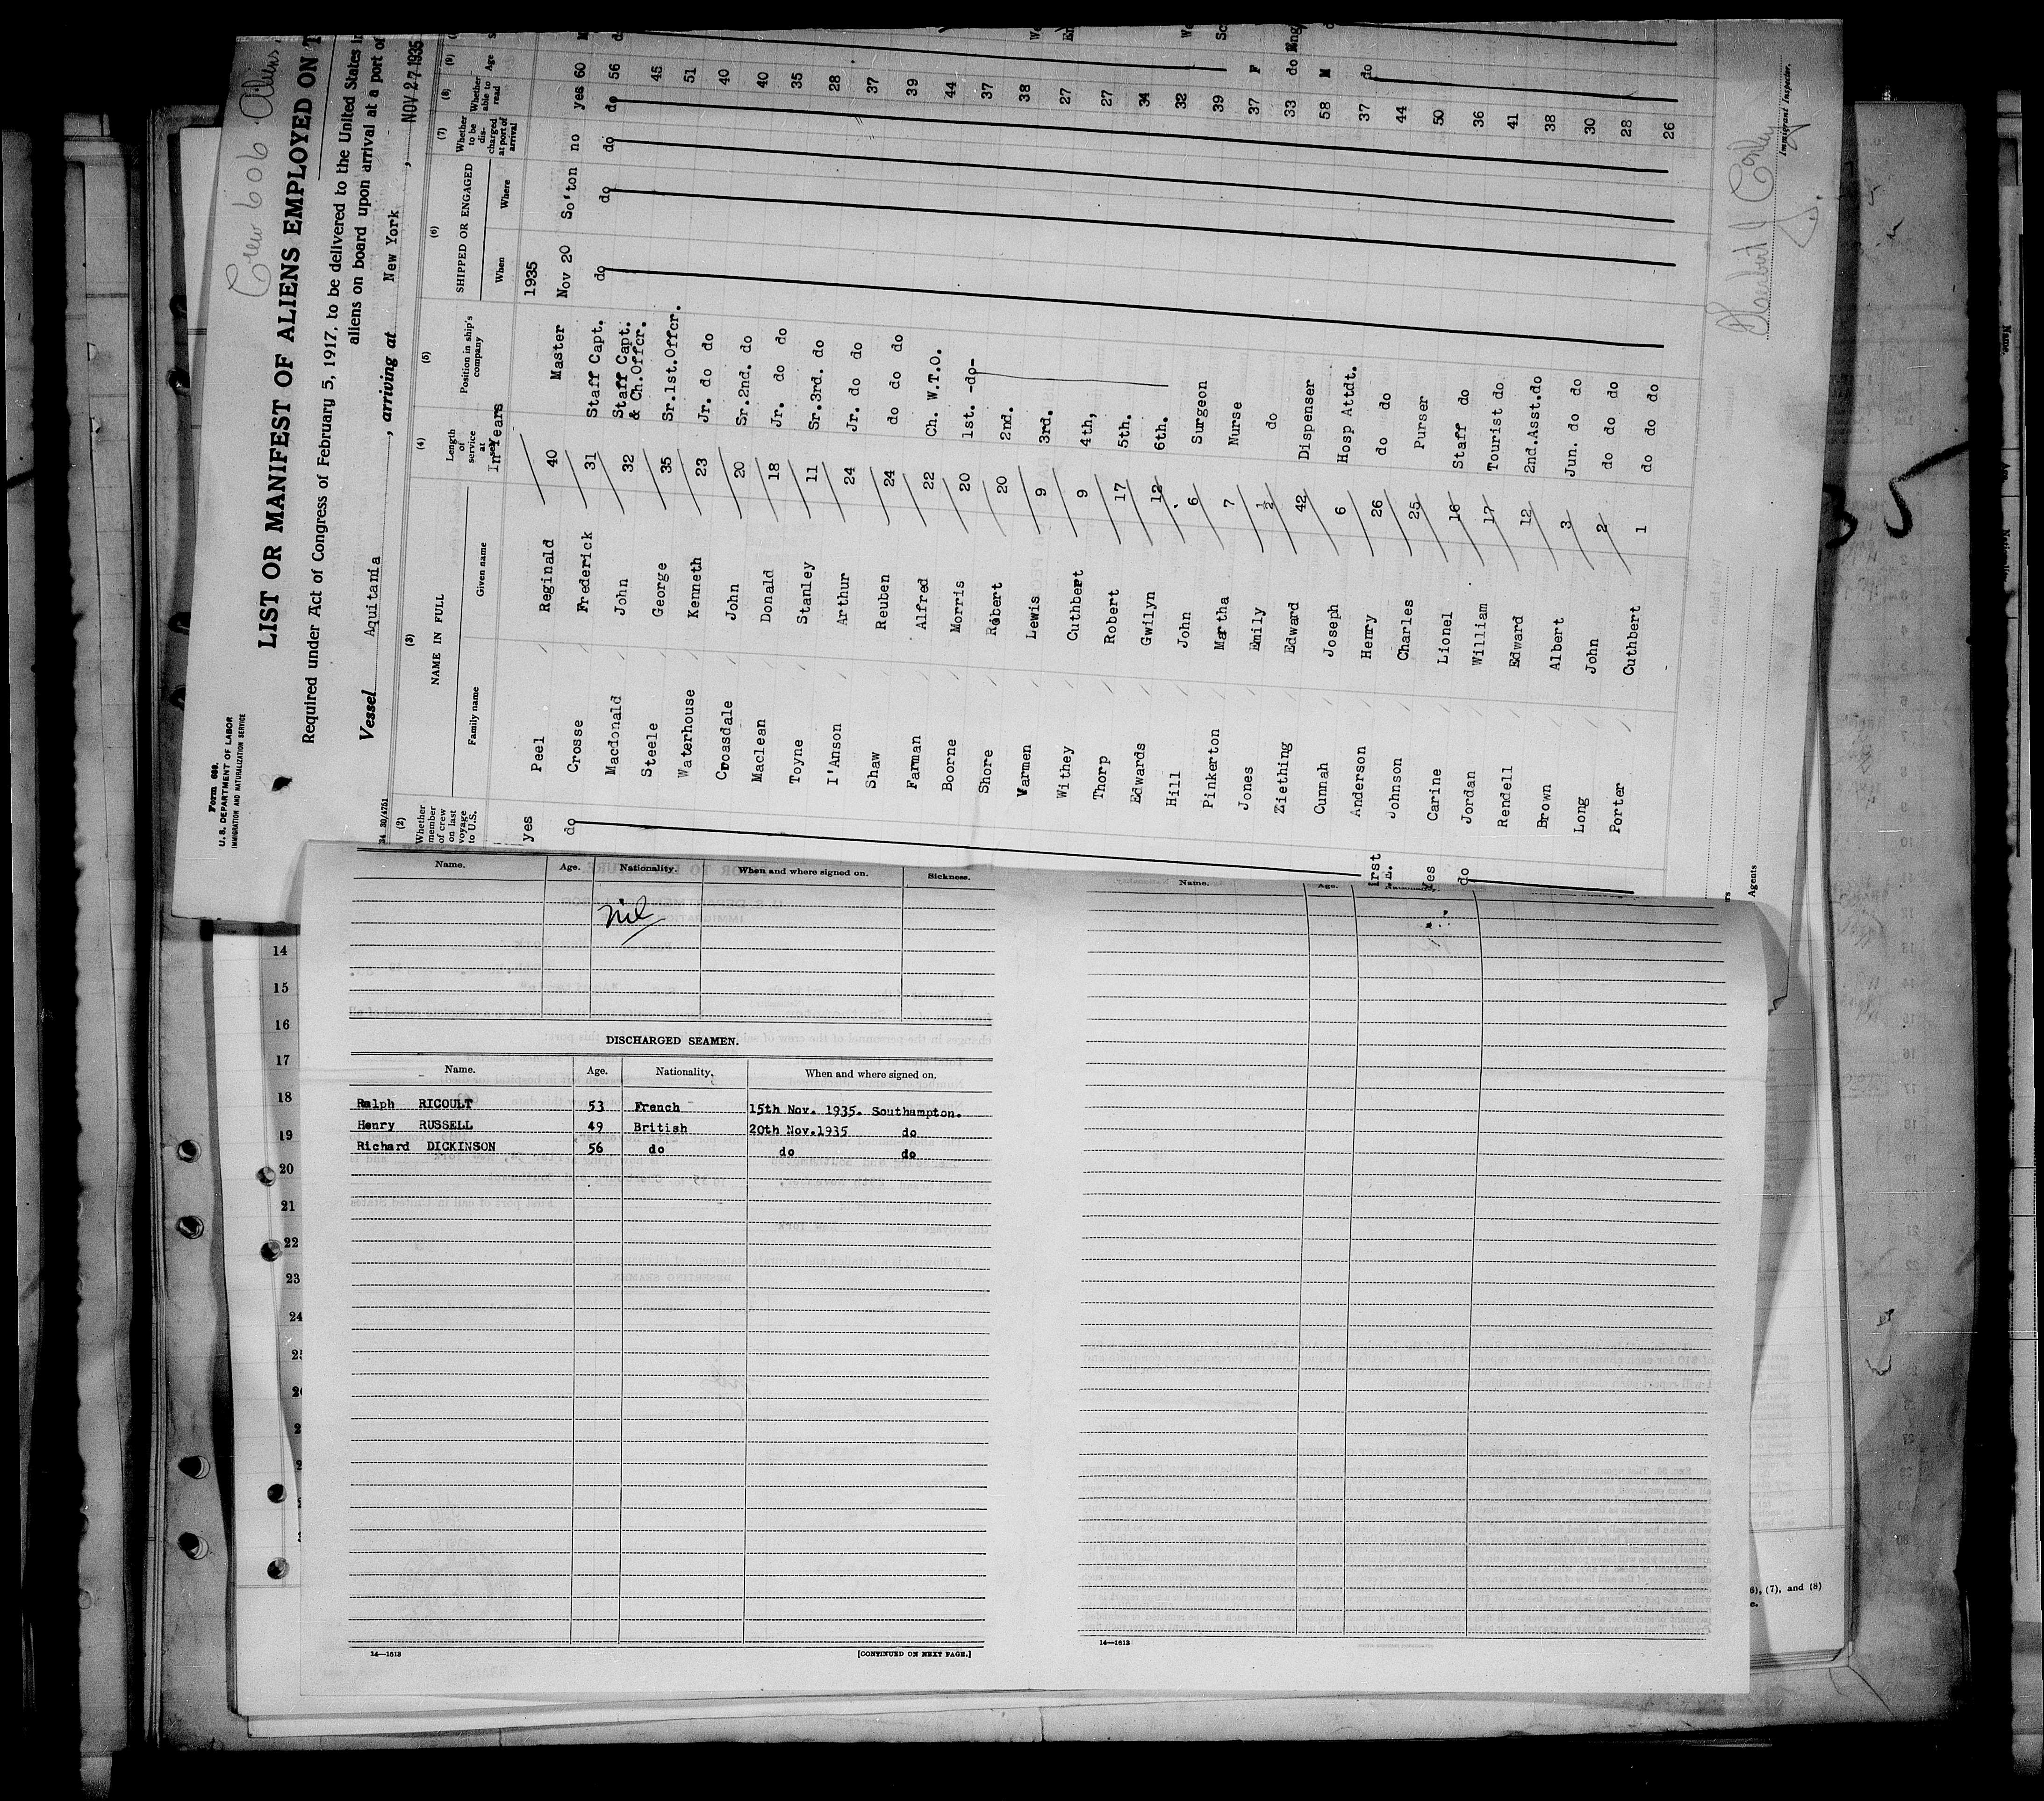 Crew 606 Aliens
Form 689.
U. S. DEPARTMENT OF LABOR
IMMIGRATION AND NATURALIZATION SERVICE
LIST OR MANIFEST OF ALIENS EMPLOYED ON
Required under Act of Congress of February 5, 1917, to be delivered to the United States
aliens on board upon arrival at a port of
Vessel Aquitania, arriving at New York, NOV 27 1935
34 30/4751
(2) (3) (4) (5) (6) (7) (8) (9)
Whether member of crew on last voyage to U.S. NAME IN FULL Length of service at sea Position in ship's company SHIPPED OR ENGAGED Whether to be discharged at port of arrival Whether able to read Age
Family name Given name In Years When Where
1935
yes Peel Reginald 40 Master Nov 20 So'ton no yes 60
do Crosse Frederick 31 Staff Capt. do do do do 56
Macdonald John 32 Staff Capt. & Ch.Offcr. 45
Steele George 35 Sr.1st.Offcr. 51
Waterhouse Kenneth 23 Jr. do do 40
Croasdale John 20 Sr.2nd. do 40
Maclean Donald 18 Jr. do do 35
Toyne Stanley 11 Sr.3rd. do 28
I'Anson Arthur 24 Jr. do do 37
Shaw Reuben 24 do do do 39
Farman Alfred 22 Ch. W.T.O. 44
Boorne Morris 20 1st. -do- 37
Shore Robert 20 2nd. 38
Varmen Lewis 9 3rd. 27
Withey Cuthbert 9 4th, 27
Thorp Robert 17 5th. 34
Edwards Gwilyn 12 6th. 32
Hill John 6 Surgeon 39
Pinkerton Martha 7 Nurse 37 F
Jones Emily 1/2 do 33 do Eng
Ziething Edward 42 Dispenser 58 M
Cunnah Joseph 6 Hosp Attdt. 37 do
Anderson Henry 26 do do 44
Johnson Charles 25 Purser 50
yes Carine Lionel 16 Staff do 36
do Jordan William 17 Tourist do 41
Rendell Edward 12 2nd.Asst.do 38
Brown Albert 3 Jun. do do 30
Long John 2 do do do 28
Porter Cuthbert 1 do do do 26
Immigrant Inspector.
Agents
35
Name. Age. Nationality. When and where signed on. Sickness.
nil
Name. Age.
DISCHARGED SEAMEN.
Name. Age. Nationality. When and where signed on.
Ralph RICOULT 53 French 15th Nov. 1935. Southampton.
Henry RUSSELL 49 British 20th Nov.1935 do
Richard DICKINSON 56 do do do
14—1613 [CONTINUED ON NEXT PAGE.]
14—1613
14
15
16
17
18
19
20
21
22
23
24
6), (7), and (8)